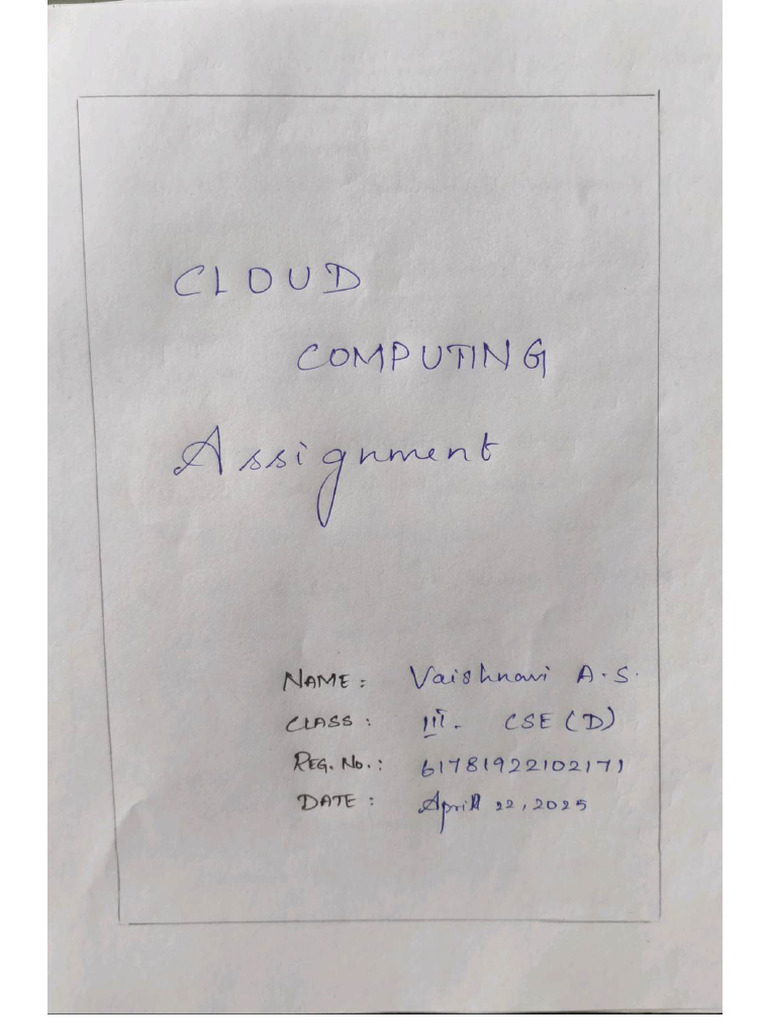 CLOUD
COMPUTING
Assignment
NAME: Vaishnavi A.S.
CLASS: III - CSE (D)
REG. No.: 61781922102171
DATE: April 22, 2025